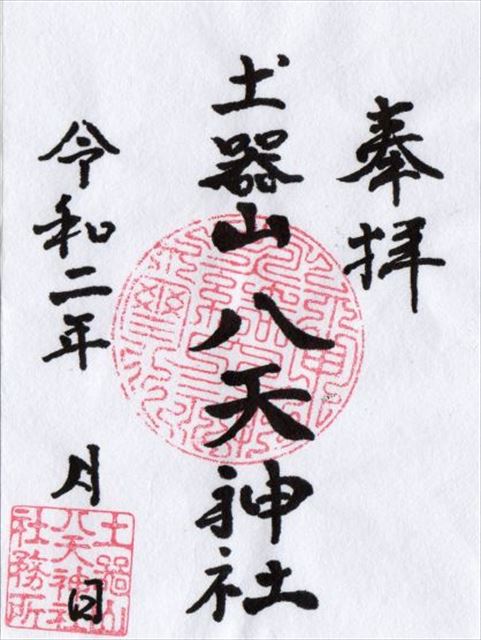 奉拝
土器山八天神社
令和二年 月 日
土器山
八天神社
社務所